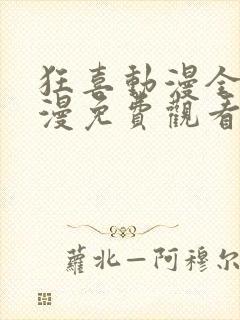 狂喜動漫全
漫免費觀看
蘿北—阿穆尔